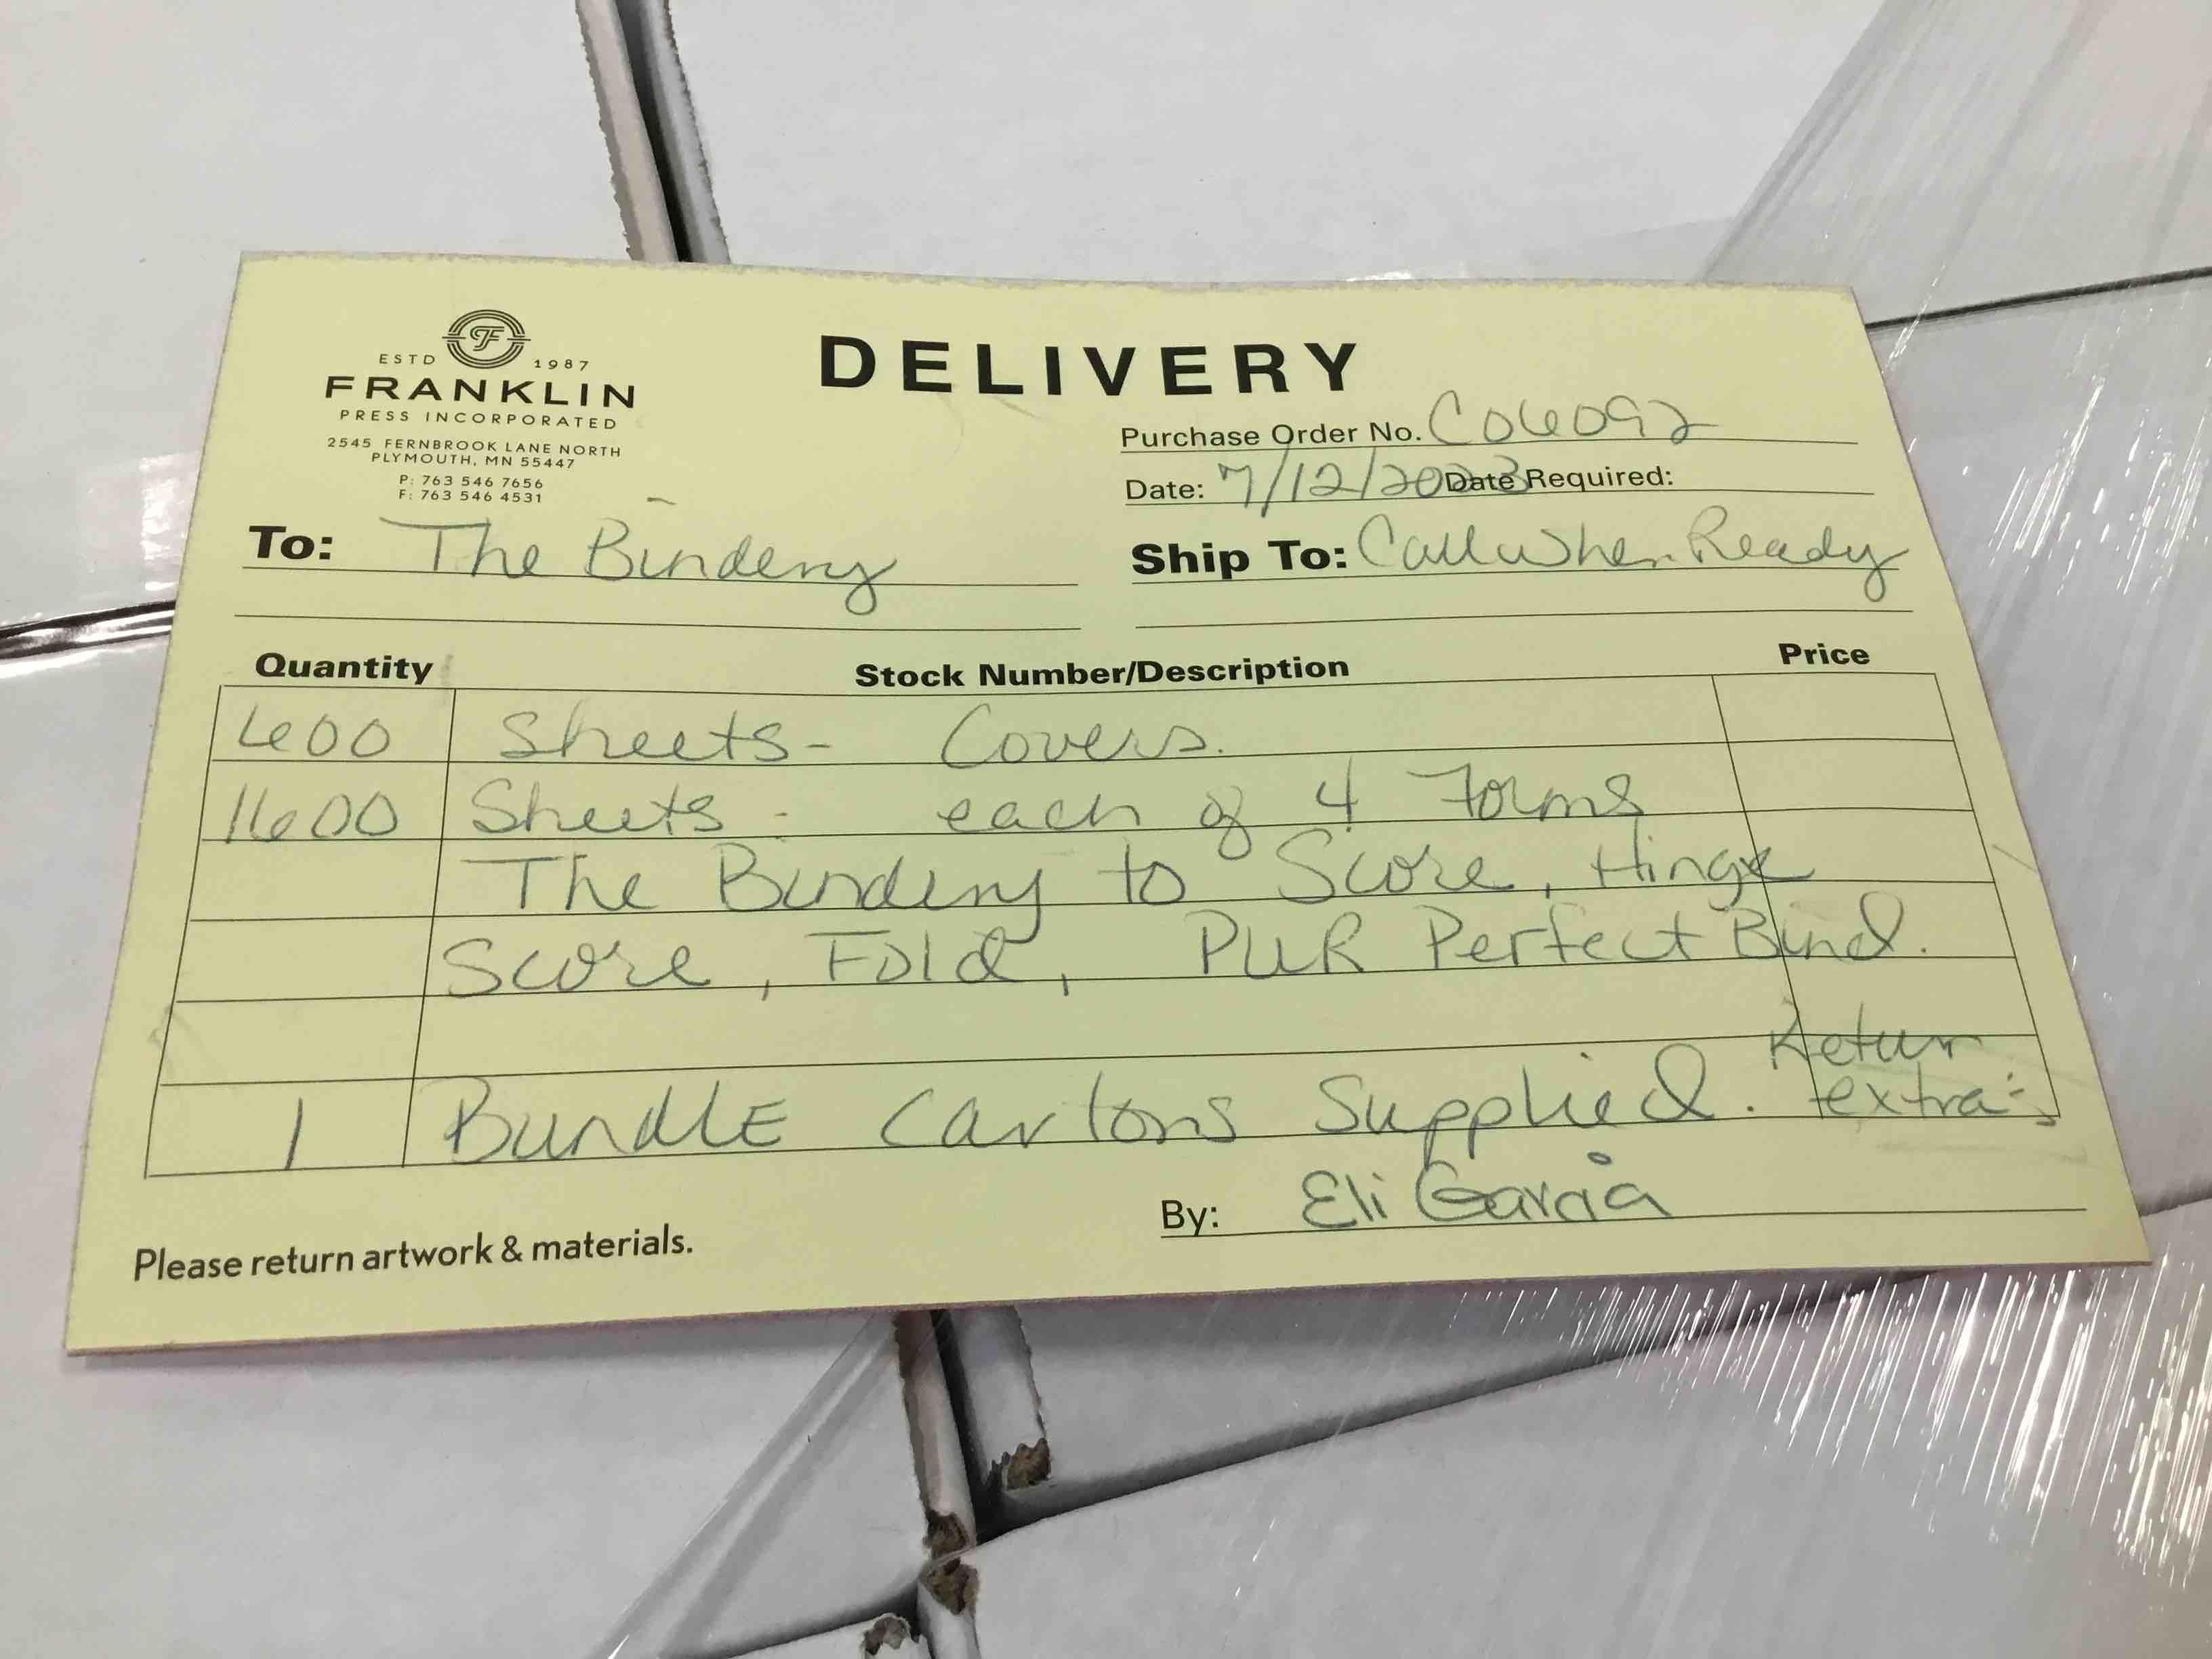 ESTD F 1987
FRANKLIN
PRESS INCORPORATED
2545 FERNBROOK LANE NORTH
PLYMOUTH, MN 55447
P: 763 546 7656
F: 763 546 4531
DELIVERY
Purchase Order No. C06092
Date: 7/12/2023 Date Required:
To: The Bindery
Ship To: Call When Ready
Quantity Stock Number/Description Price
600 Sheets- Covers.
1600 Sheets - each of 4 Forms
The Bindery to Score, Hinge
Score, Fold, PUR Perfect Bind.
1 BundlE Cartons Supplied. Return
extras
By: Eli Garcia
Please return artwork & materials.